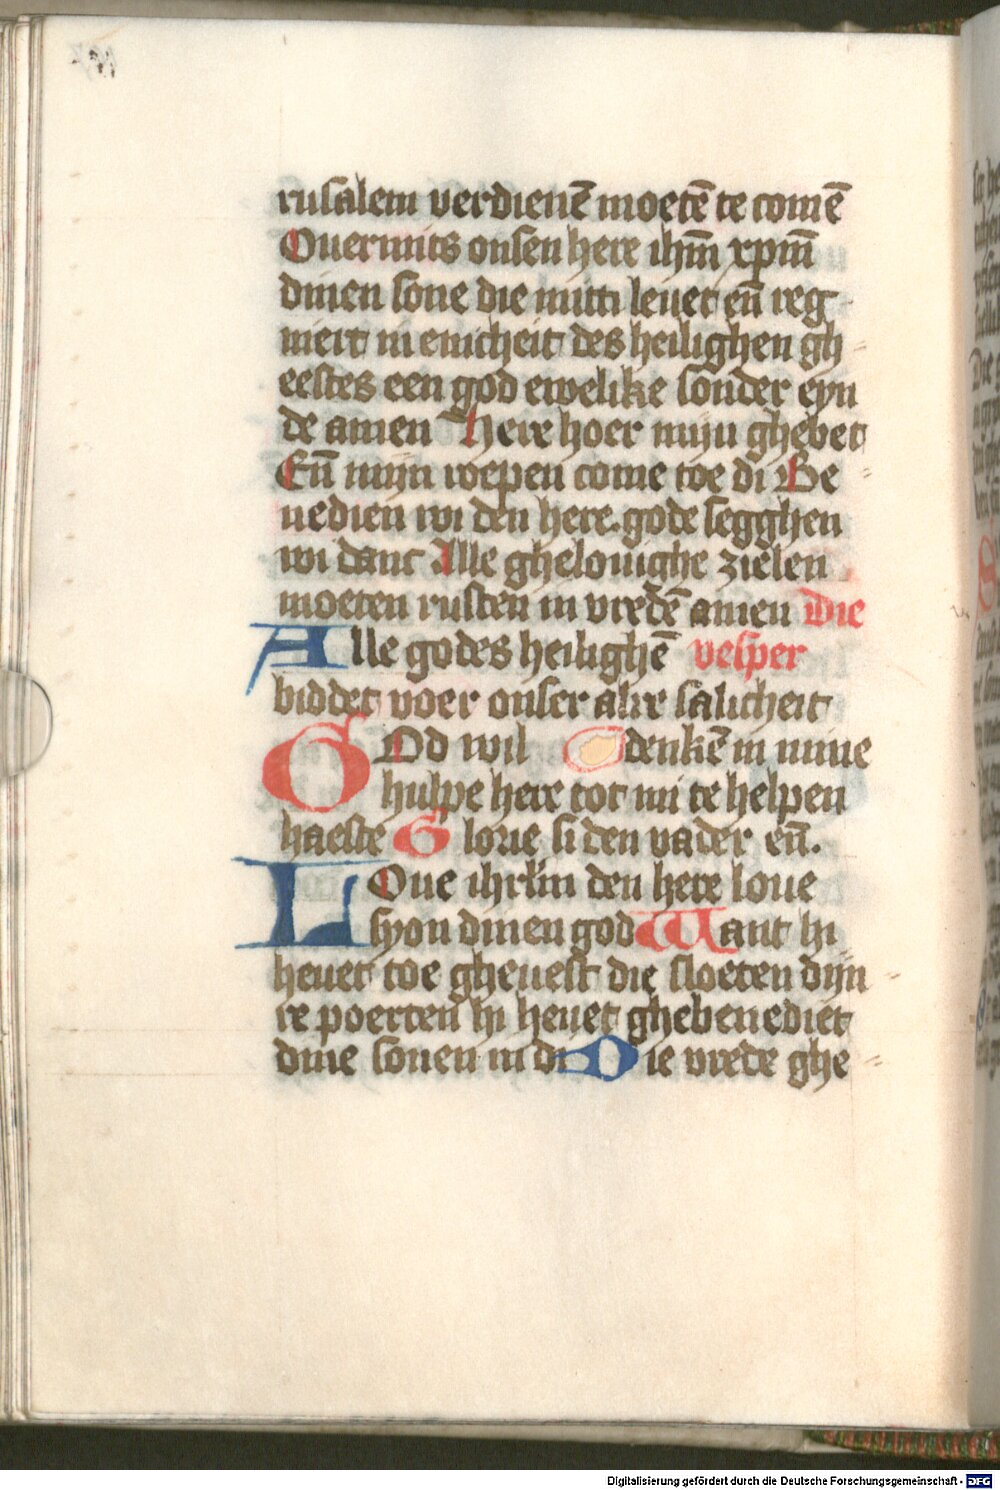 rusalem verdienē moetē te comē
Ouermits onsen here ihm̄ xpm̄
dinen sone die mitti leuet eñ reg
niert in enicheit des heilighen gh
eestes een god ewelike sonder eyn
de amen Here hoer mijn ghebet
Eñ mijn roepen come toe di Be
nedien wi den here. gode segghen
wi danc Alle ghelouighe zielen
moeten rusten in vredē amen Die
Alle godes heilighē vesper
biddet voer onser alre salicheit
GOd wil denkē in mine
hulpe here tot mi te helpen
haeste Glorie si den vader eñ.
LOue ihrl̄m den here loue
syon dinen god Want hi
heuet toe gheuest die sloeten dijn
re poerten hi heuet ghebenediet
dine sonen in di Die vrede ghe
Digitalisierung gefördert durch die Deutsche Forschungsgemeinschaft - DFG